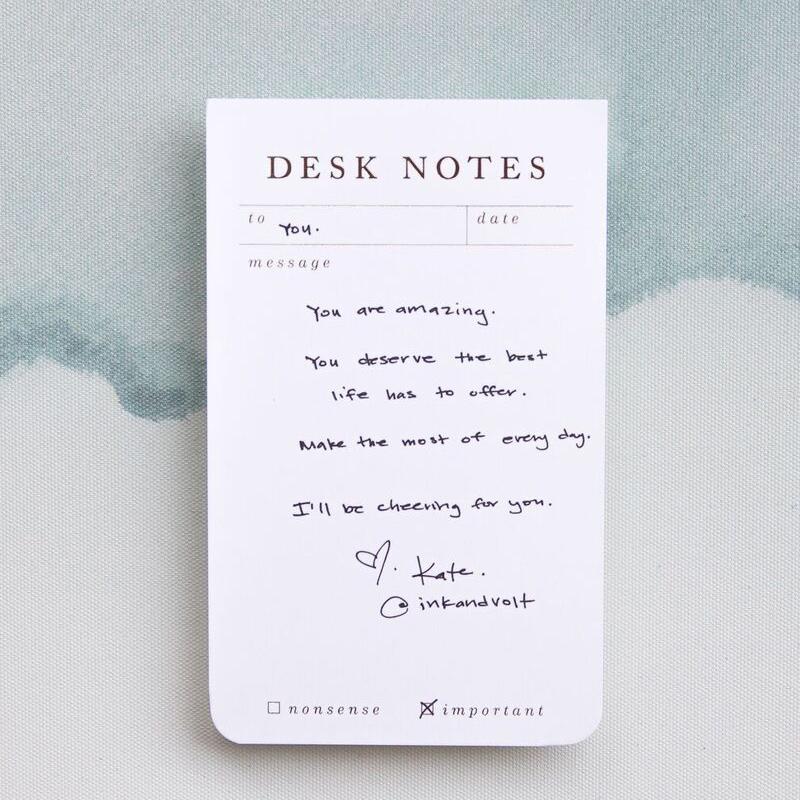 DESK NOTES
to You.
date
message
You are amazing.
You deserve the best
life has to offer.
Make the most of every day.
I'll be cheering for you.
♡. Kate.
@inkandvolt
☐ nonsense ☒ important